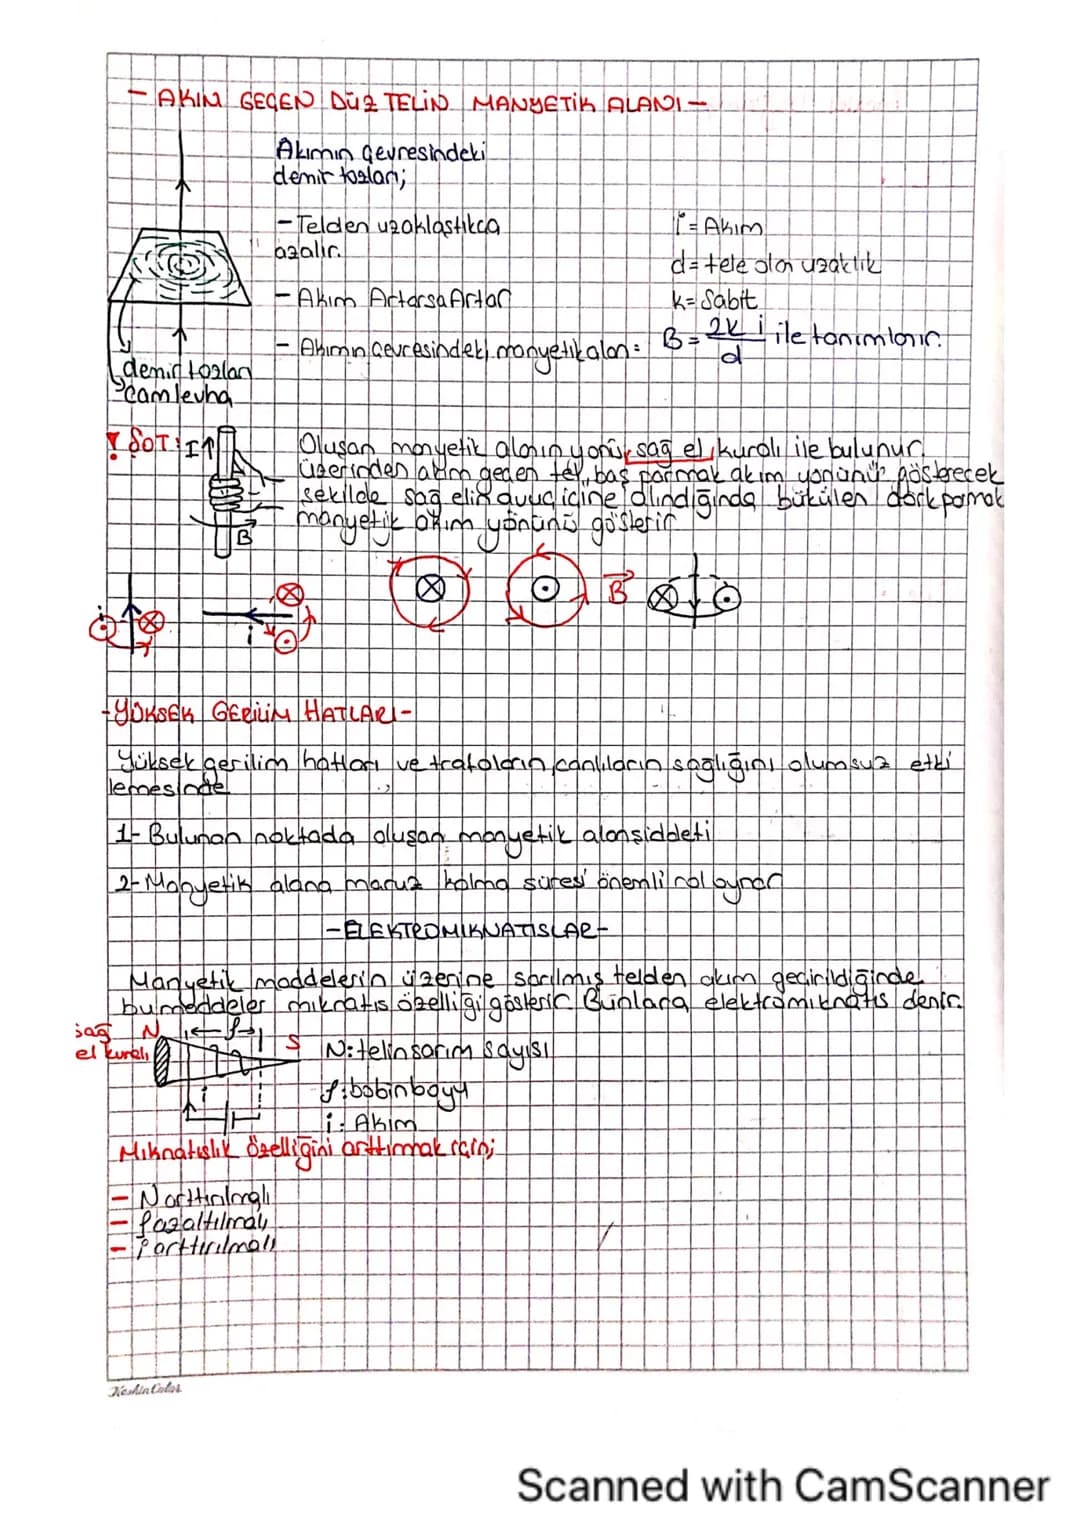 - AKIM GEÇEN DÜZ TELİN MANYETİK ALANI -
Akımın çevresindeki
demir tozları;
- Telden uzaklaştıkca
azalır.
- Akım Artarsa Artar
- Akımın çevresindeki manyetik alan:
i = Akım
d = tele olan uzaklık
k = Sabit
B = 2k i / d ile tanımlanır.
demir tozları
cam levha
! ŞOT: I
B
Oluşan manyetik alanın yönü, sağ el kuralı ile bulunur.
üzerinden akım geçen tel, baş parmak akım yönünü gösterecek
şekilde sağ elin avuç içine alındığında bükülen dört parmak
manyetik akım yönünü gösterir
i
i
B
- YÜKSEK GERİLİM HATLARI -
Yüksek gerilim hatları ve trafoların canlıların sağlığını olumsuz etki
lemesinde
1- Bulunan noktada oluşan manyetik alan şiddeti
2- Manyetik alana maruz kalma süresi önemli rol oynar
- ELEKTROMIKNATISLAR -
Manyetik maddelerin üzerine sarılmış telden akım geçirildiğinde
bu maddeler mıknatıs özelliği gösterir. Bunlara elektromıknatıs denir.
sağ
el kuralı
N
l
S
i
N: telin sarım sayısı
l: bobin boyu
i: Akım
Mıknatıslık özelliğini arttırmak için;
- N arttırılmalı
- l azaltılmalı
- i arttırılmalı
Keskin Color
Scanned with CamScanner